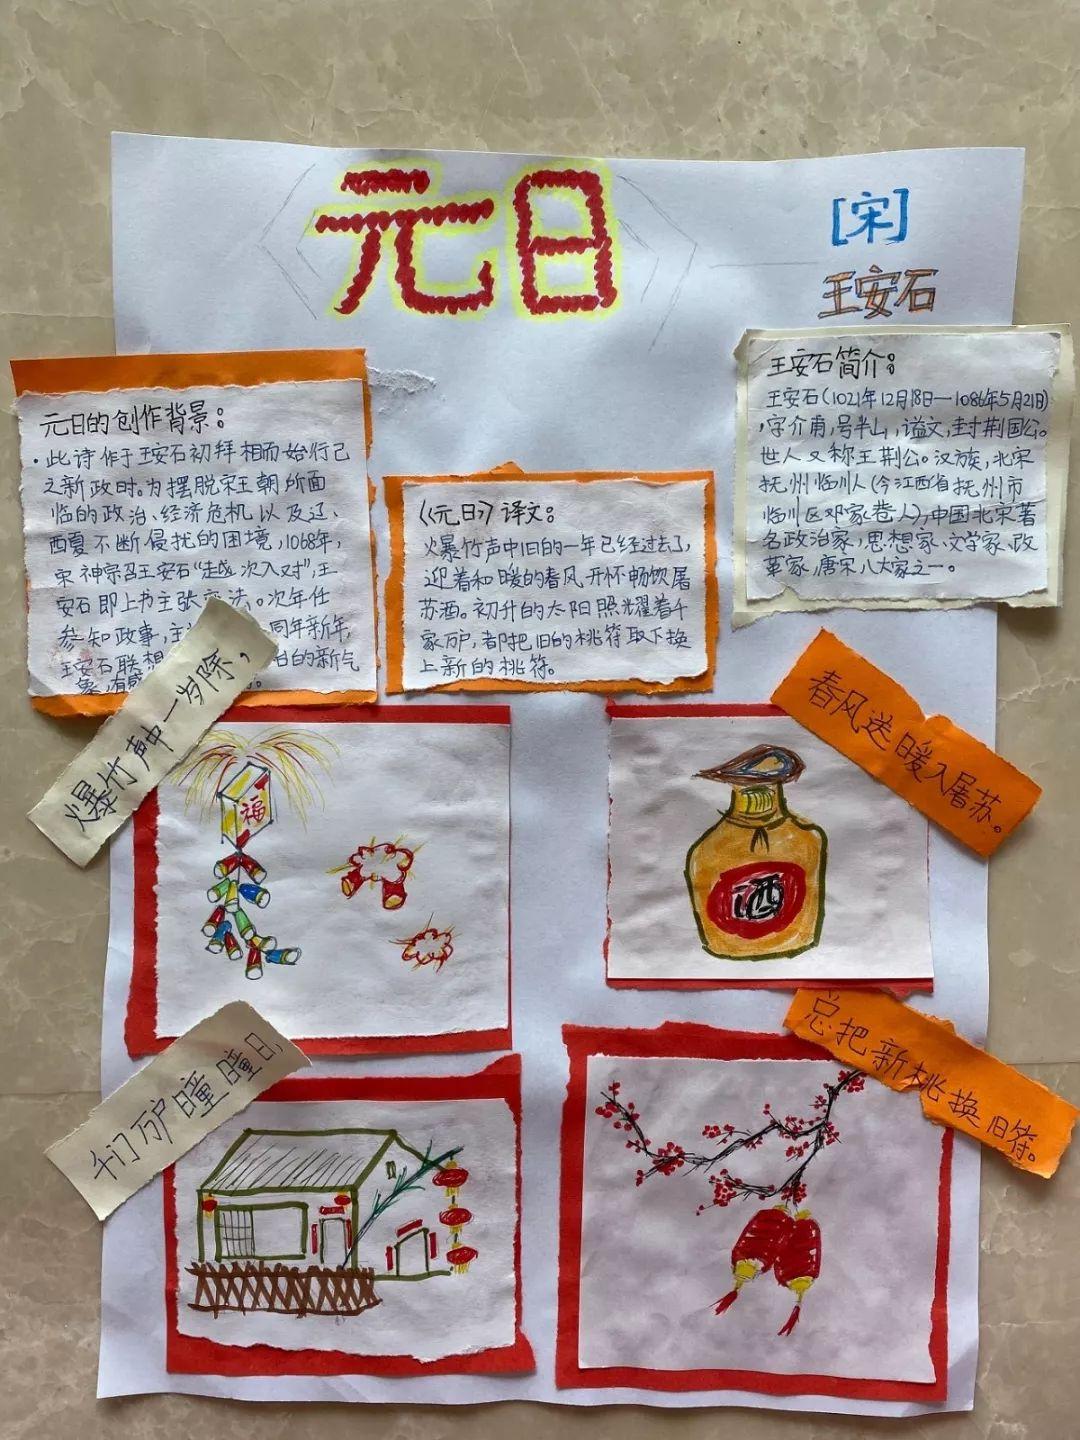 元日
[宋]
王安石
王安石简介：
王安石(1021年12月18日—1086年5月21日)
，字介甫，号半山，谥文，封荆国公。
世人又称王荆公。汉族，北宋
抚州临川人(今江西省抚州市
临川区邓家巷人)，中国北宋著
名政治家，思想家、文学家、改
革家，唐宋八大家之一。
元日的创作背景：
·此诗作于王安石初拜相而始行己
之新政时。为摆脱宋王朝所面
临的政治、经济危机以及辽、
西夏不断侵扰的困境，1068年，
宋神宗召王安石“越次入对”，王
安石即上书主张变法。次年任
参知政事，主 同年新年，
王安石联想 的新气
象，有感
《元日》译文：
爆竹声中旧的一年已经过去了，
迎着和暖的春风开怀畅饮屠
苏酒。初升的太阳照耀着千
家万户，都把旧的桃符取下换
上新的桃符。
爆竹声中一岁除，
春风送暖入屠苏。
福
酒
千门万户曈曈日，
总把新桃换旧符。